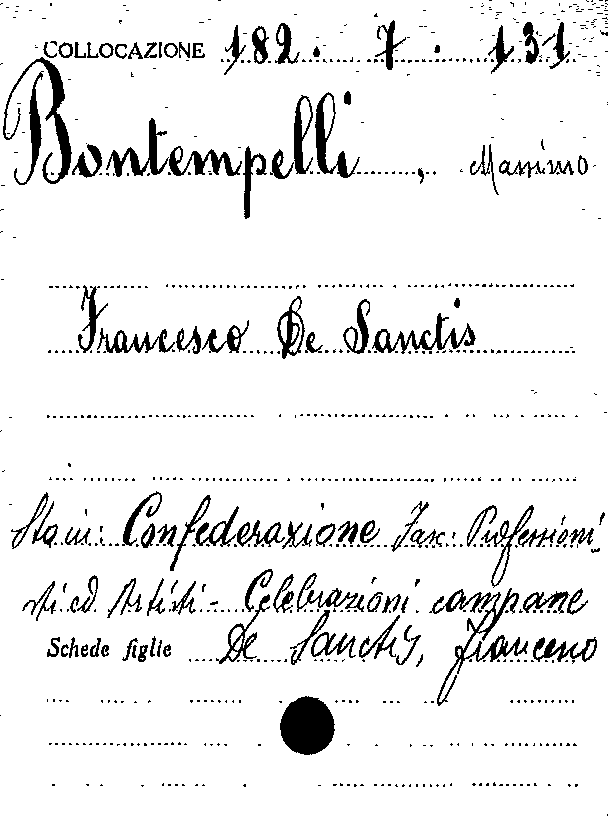 COLLOCAZIONE 182. 7. 131
Bontempelli, Massimo
Francesco De Sanctis
Sta in: Confederazione Fasc: Professioni-
sti ed Artisti - Celebrazioni campane
Schede figlie De Sanctis, Francesco